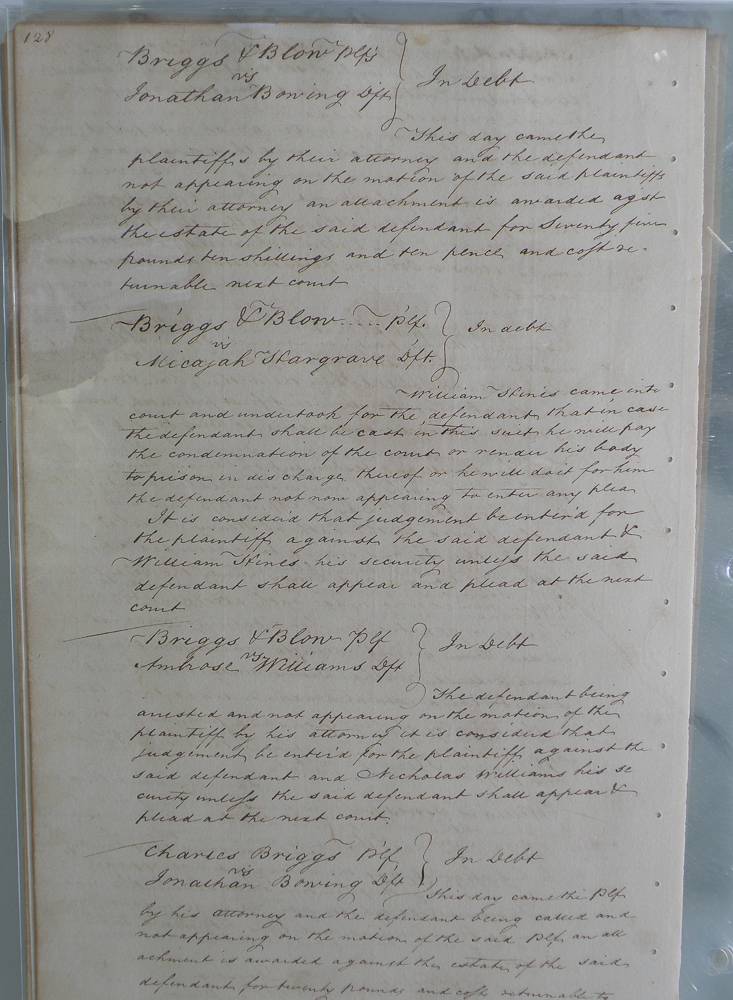 128
Briggs & Blow Plfs
vs
Jonathan Bowing Dft
In Debt
This day came the
plaintiffs by their attorney and the defendant
not appearing on the motion of the said plaintiffs
by their attorney an attachment is awarded agst
the estate of the said defendant for Seventy five
pounds ten shillings and ten pence and cost re-
turnable next court
Briggs & Blow .... Plf.
vs
Micajah Hargrave Dft.
In debt
William Hines came into
court and undertook for the defendant that in case
the defendant shall be cast in this suit he will pay
the condemnation of the court or render his body
to prison in discharge thereof or he will do it for him
the defendant not now appearing to enter any plea
It is consider'd that judgement be enter'd for
the plaintiff against the said defendant &
William Hines his security unless the said
defendant shall appear and plead at the next
court
Briggs & Blow Plf
vs
Ambrose Williams Dft
In Debt
The defendant being
arrested and not appearing on the motion of the
plaintiff by his attorney it is considerd that
judgement be enter'd for the plaintiff against the
said defendant and Nicholas Williams his se
curity unless the said defendant shall appear &
plead at the next court.
Charles Briggs Plf
vs
Jonathan Bowing Dft
In Debt
This day came the Plf
by his attorney and the defendant being called and
not appearing on the motion of the said Plf an att
achment is awarded against the estate of the said
defendant for twenty pounds and costs returnable to